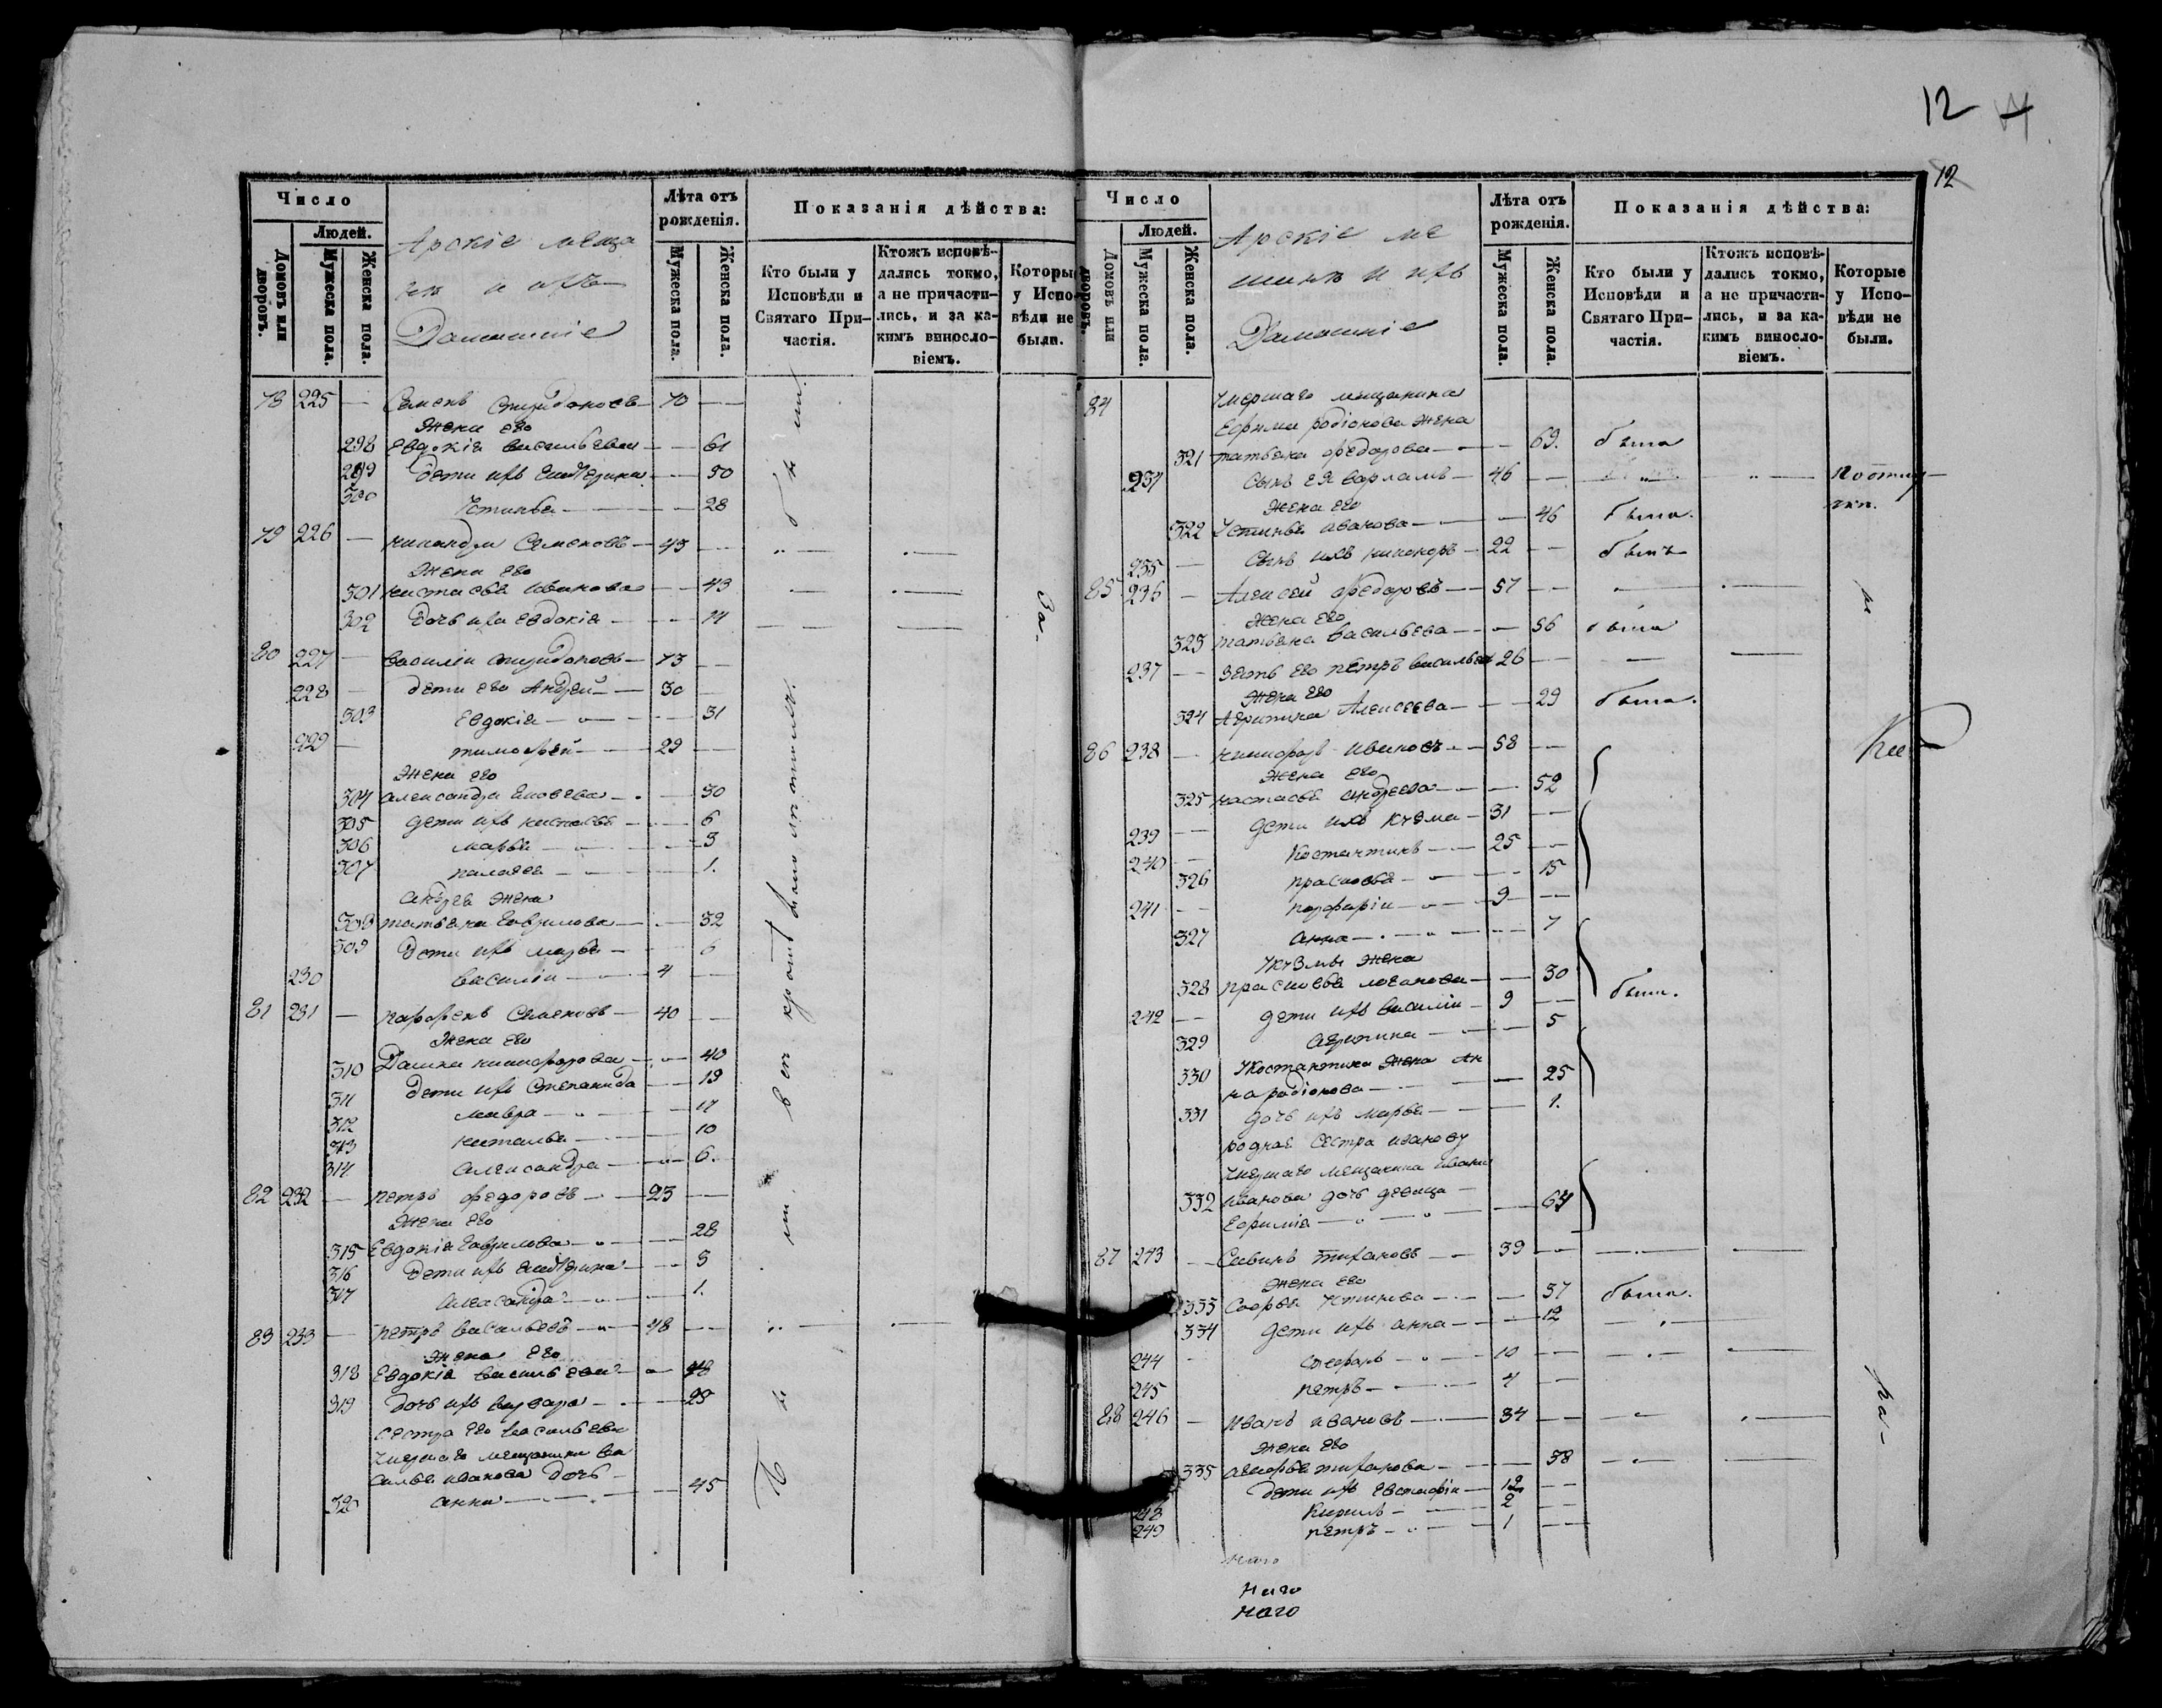 12
12
Число
Лѣта отъ рожденія.
Показанія дѣйства:
Людей.
Домовъ или дворовъ.
Мужеска пола.
Женска пола.
Арскіе меща
не и ихъ
Домашніе
Мужеска пола.
Женска пола.
Кто были у Исповѣди и Святаго Причастія.
Ктожъ исповѣдались токмо, а не причастились, и за какимъ винословіемъ.
Которые у Исповѣди не были.
78 225 — Семенъ Спиридоновъ — 70 —
Жена его
298 Евдокія васильева — 61
299 Дети ихъ Екатерина — 30
300 Устинья — 28
79 226 — Семеновъ — 45 —
Жена его
301 настасья Иванова — 43
302 дочь их евдокія — 14
80 227 — василіи спиридоновъ — 73 —
228 — дети его Андрей — 30 —
303 Евдокія — 31
229 — тимофей — 29 —
Жена его
304 александра — 30
305 дети ихъ настасья — 6
306 марья — 3
307 палагея — 1.
Андрея жена
308 татьяна Гаврилова — 32
309 Дети ихъ марья — 6
230 василіи — 4 —
81 231 — парфенъ Семеновъ — 40 —
Жена его
310 никифорова — 40
311 Дети ихъ Степанида — 19
312 мавра — 17
313 наталья — 10
314 александра — 6.
82 232 — петръ федоровъ — 23 —
Жена его
315 Евдокія Гаврилова — 28
316 Дети ихъ екатерина — 3
317 Александра — 1.
83 233 — петръ васильевъ — 48 —
Жена его
318 Евдокія васильева — 48
319 дочь ихъ варвара — 25
сестра его васильева
умершаго мещанина ва
силья иванова дочь —
320 анна — 45
За-
Число
Лѣта отъ рожденія.
Показанія дѣйства:
Людей.
Домовъ или дворовъ.
Мужеска пола.
Женска пола.
Арскіе ме
щане и ихъ
Домашніе
Мужеска пола.
Женска пола.
Кто были у Исповѣди и Святаго Причастія.
Ктожъ исповѣдались токмо, а не причастились, и за какимъ винословіемъ.
Которые у Исповѣди не были.
84 умершаго мещанина
Ефима родіонова жена
321 татьяна федорова — 69. была
234 Сынъ ея варламъ — 46 —
Жена его
322 Устинья иванова — 46 была.
235 — Сынъ ихъ никаноръ — 22 — былъ
85 236 — Алексей федоровъ — 57 —
Жена его
323 татьяна васильева — 56 была
237 — зять его петръ васильев 26 —
Жена его
324 Агрипина Алексеева — 29 была.
86 238 — никифоръ ивановъ — 58 —
Жена его
325 настасья андреева — 52
239 — дети ихъ кузма — 31 —
240 — Костантинъ — 25 —
326 прасковья — 15
241 — порфиріи — 9 —
327 анна — 7
Укузмы жена
328 прасковья — 30
242 — дети ихъ василіи — 9 — были.
329 агрипина — 5
330 Укостантина жена ан
на родіонова — 25
331 дочь ихъ марья — 1.
родная сестра иванову
умершаго мещанина ивана
332 иванова дочь девица —
Ефимія — 64
87 243 — Савинъ тихановъ — 39 —
жена его
333 Софья — 37 была.
334 дети ихъ анна — 12
244 — стефанъ — 10 —
245 петръ — 4 —
88 246 — иванъ ивановъ — 34 —
жена его
335 тиханова — 38
дети ихъ Евстафіи — 12 —
248 Кирилъ — 2 —
249 петръ — 1 —
наго
наго
наго